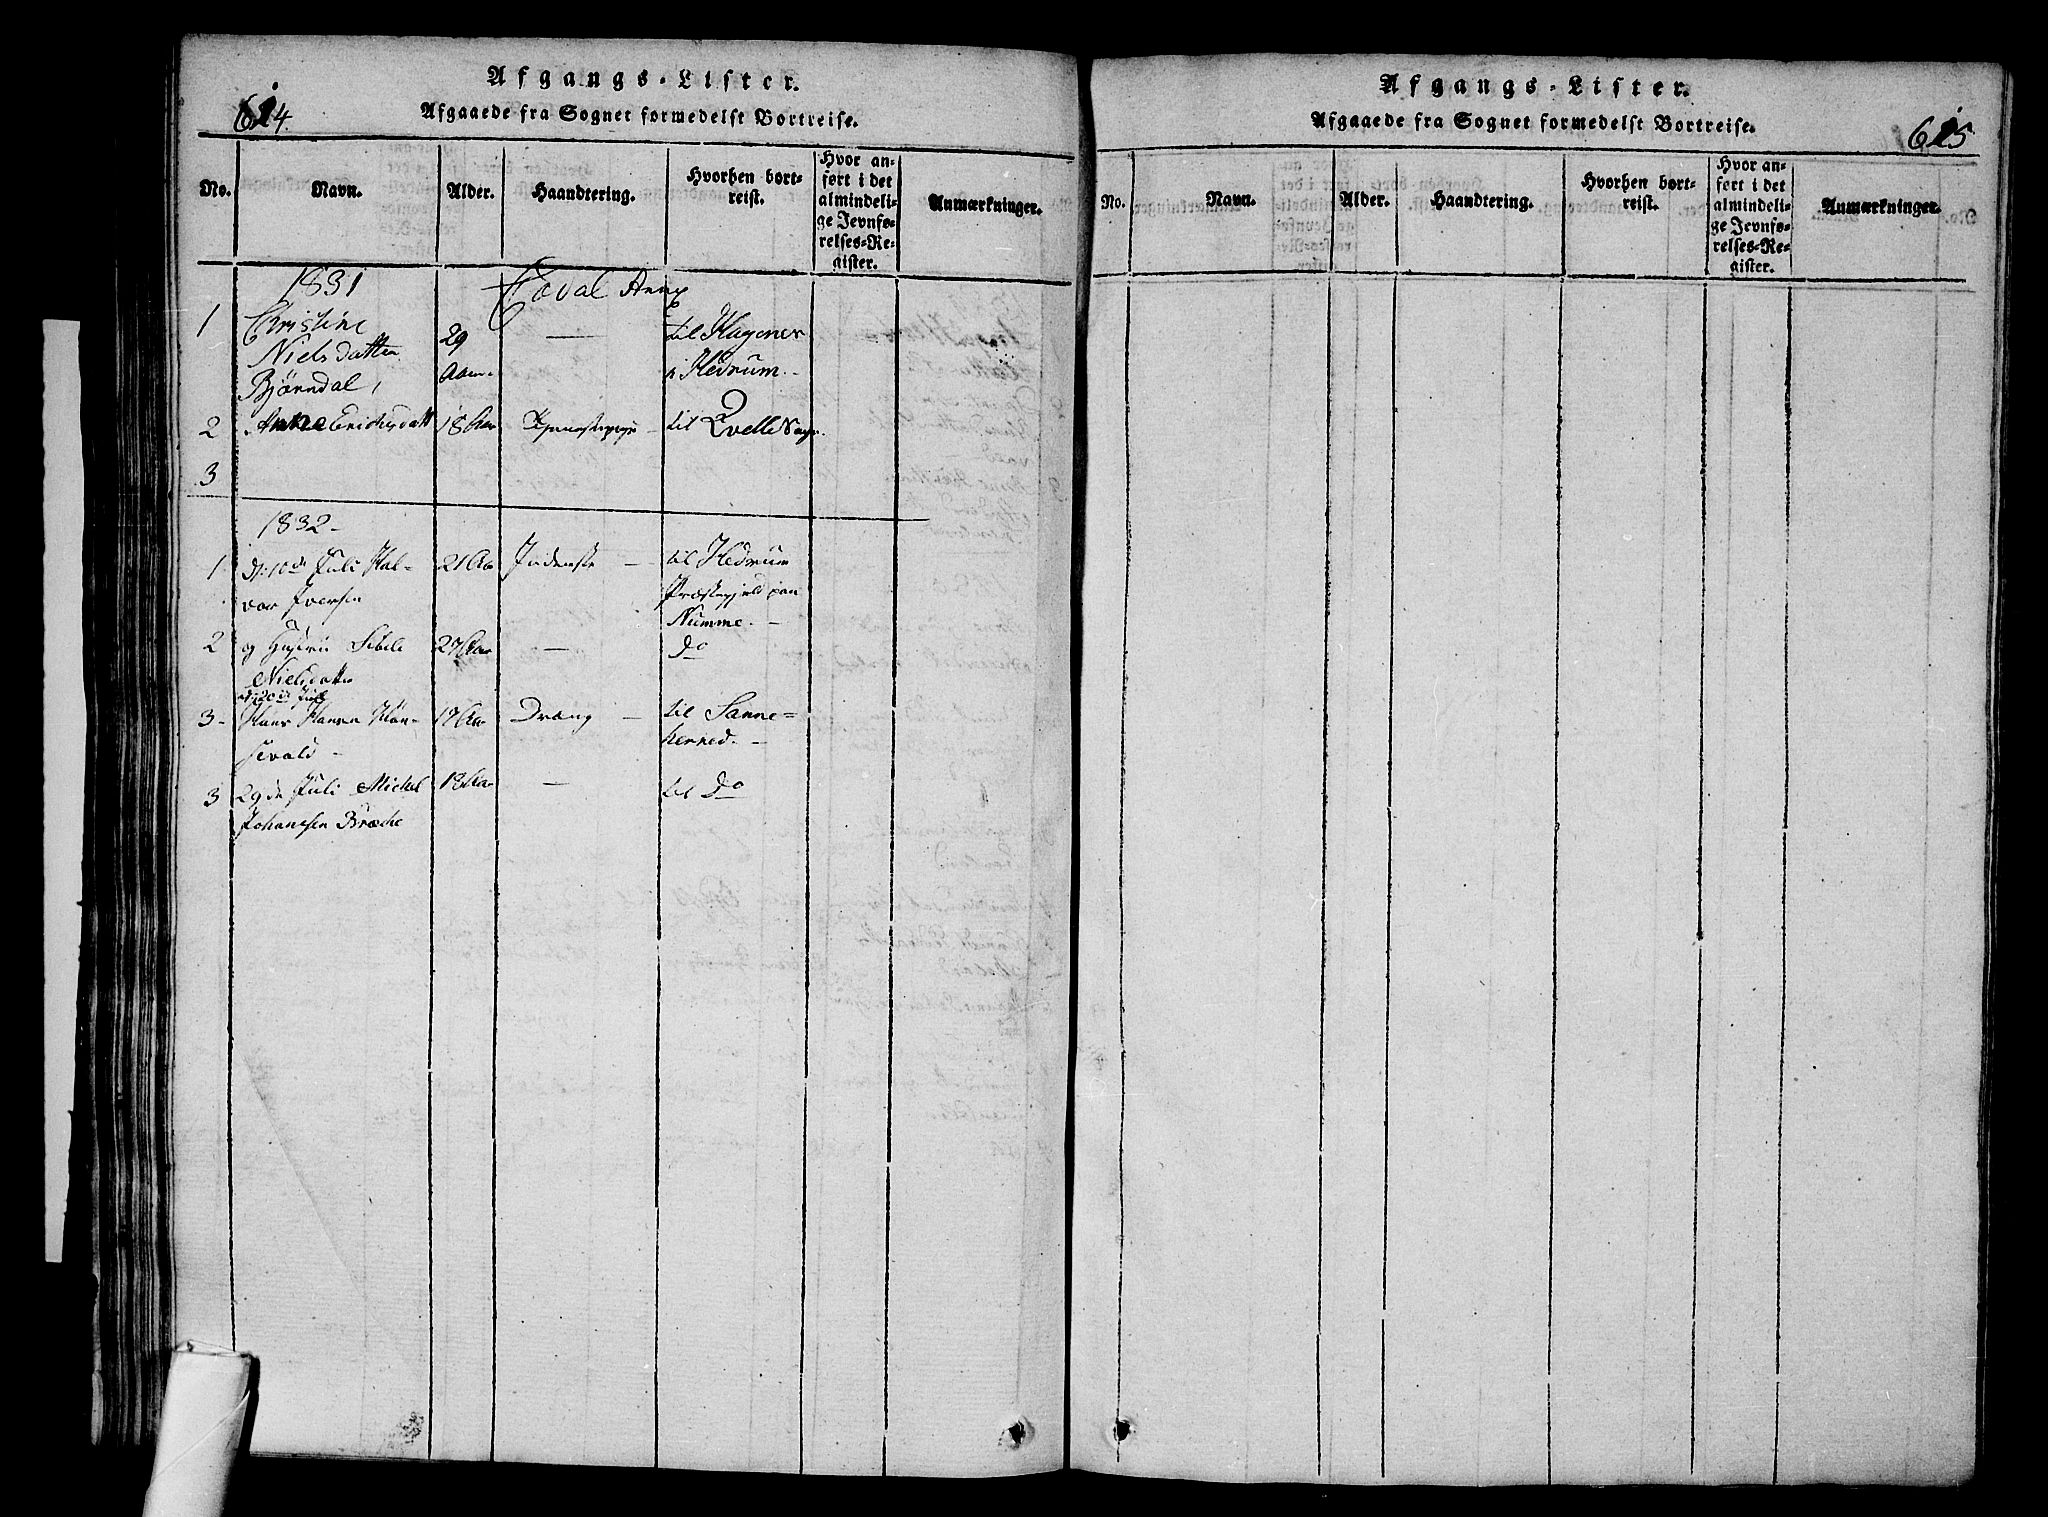 614.
Afgangs-Lister.
Afgaaede fra Sognet formedelst Bortreise.
No. Navn. Alder. Haandtering. Hvorhen bortreist. Hvor anført i det almindelige Jevnførelses-Register. Anmærkninger.
1831
1 Christine 29 — til
Nielsdatter Aar i Hedrum.
Bjørndal,
2 Anne 18 Aar til Qvelle Sogn.
3
1832-
1 d: 10de Juli Hal- 21 Aar til Hedrum
vor Iversen Præstegjeld paa
Numme. -
2 og Sibile 27 Aar — Do
Nielsdatter
d: 20de Juli
3- Hans Hansen 17 Aar Dræng — til Sanne-
sevald - herred. -
3 29de Juli Michel 18 Aar — til Do
Johansen
615
Afgangs-Lister.
Afgaaede fra Sognet formedelst Bortreise.
No. Navn. Alder. Haandtering. Hvorhen bortreist. Hvor anført i det almindelige Jevnførelses-Register. Anmærkninger.